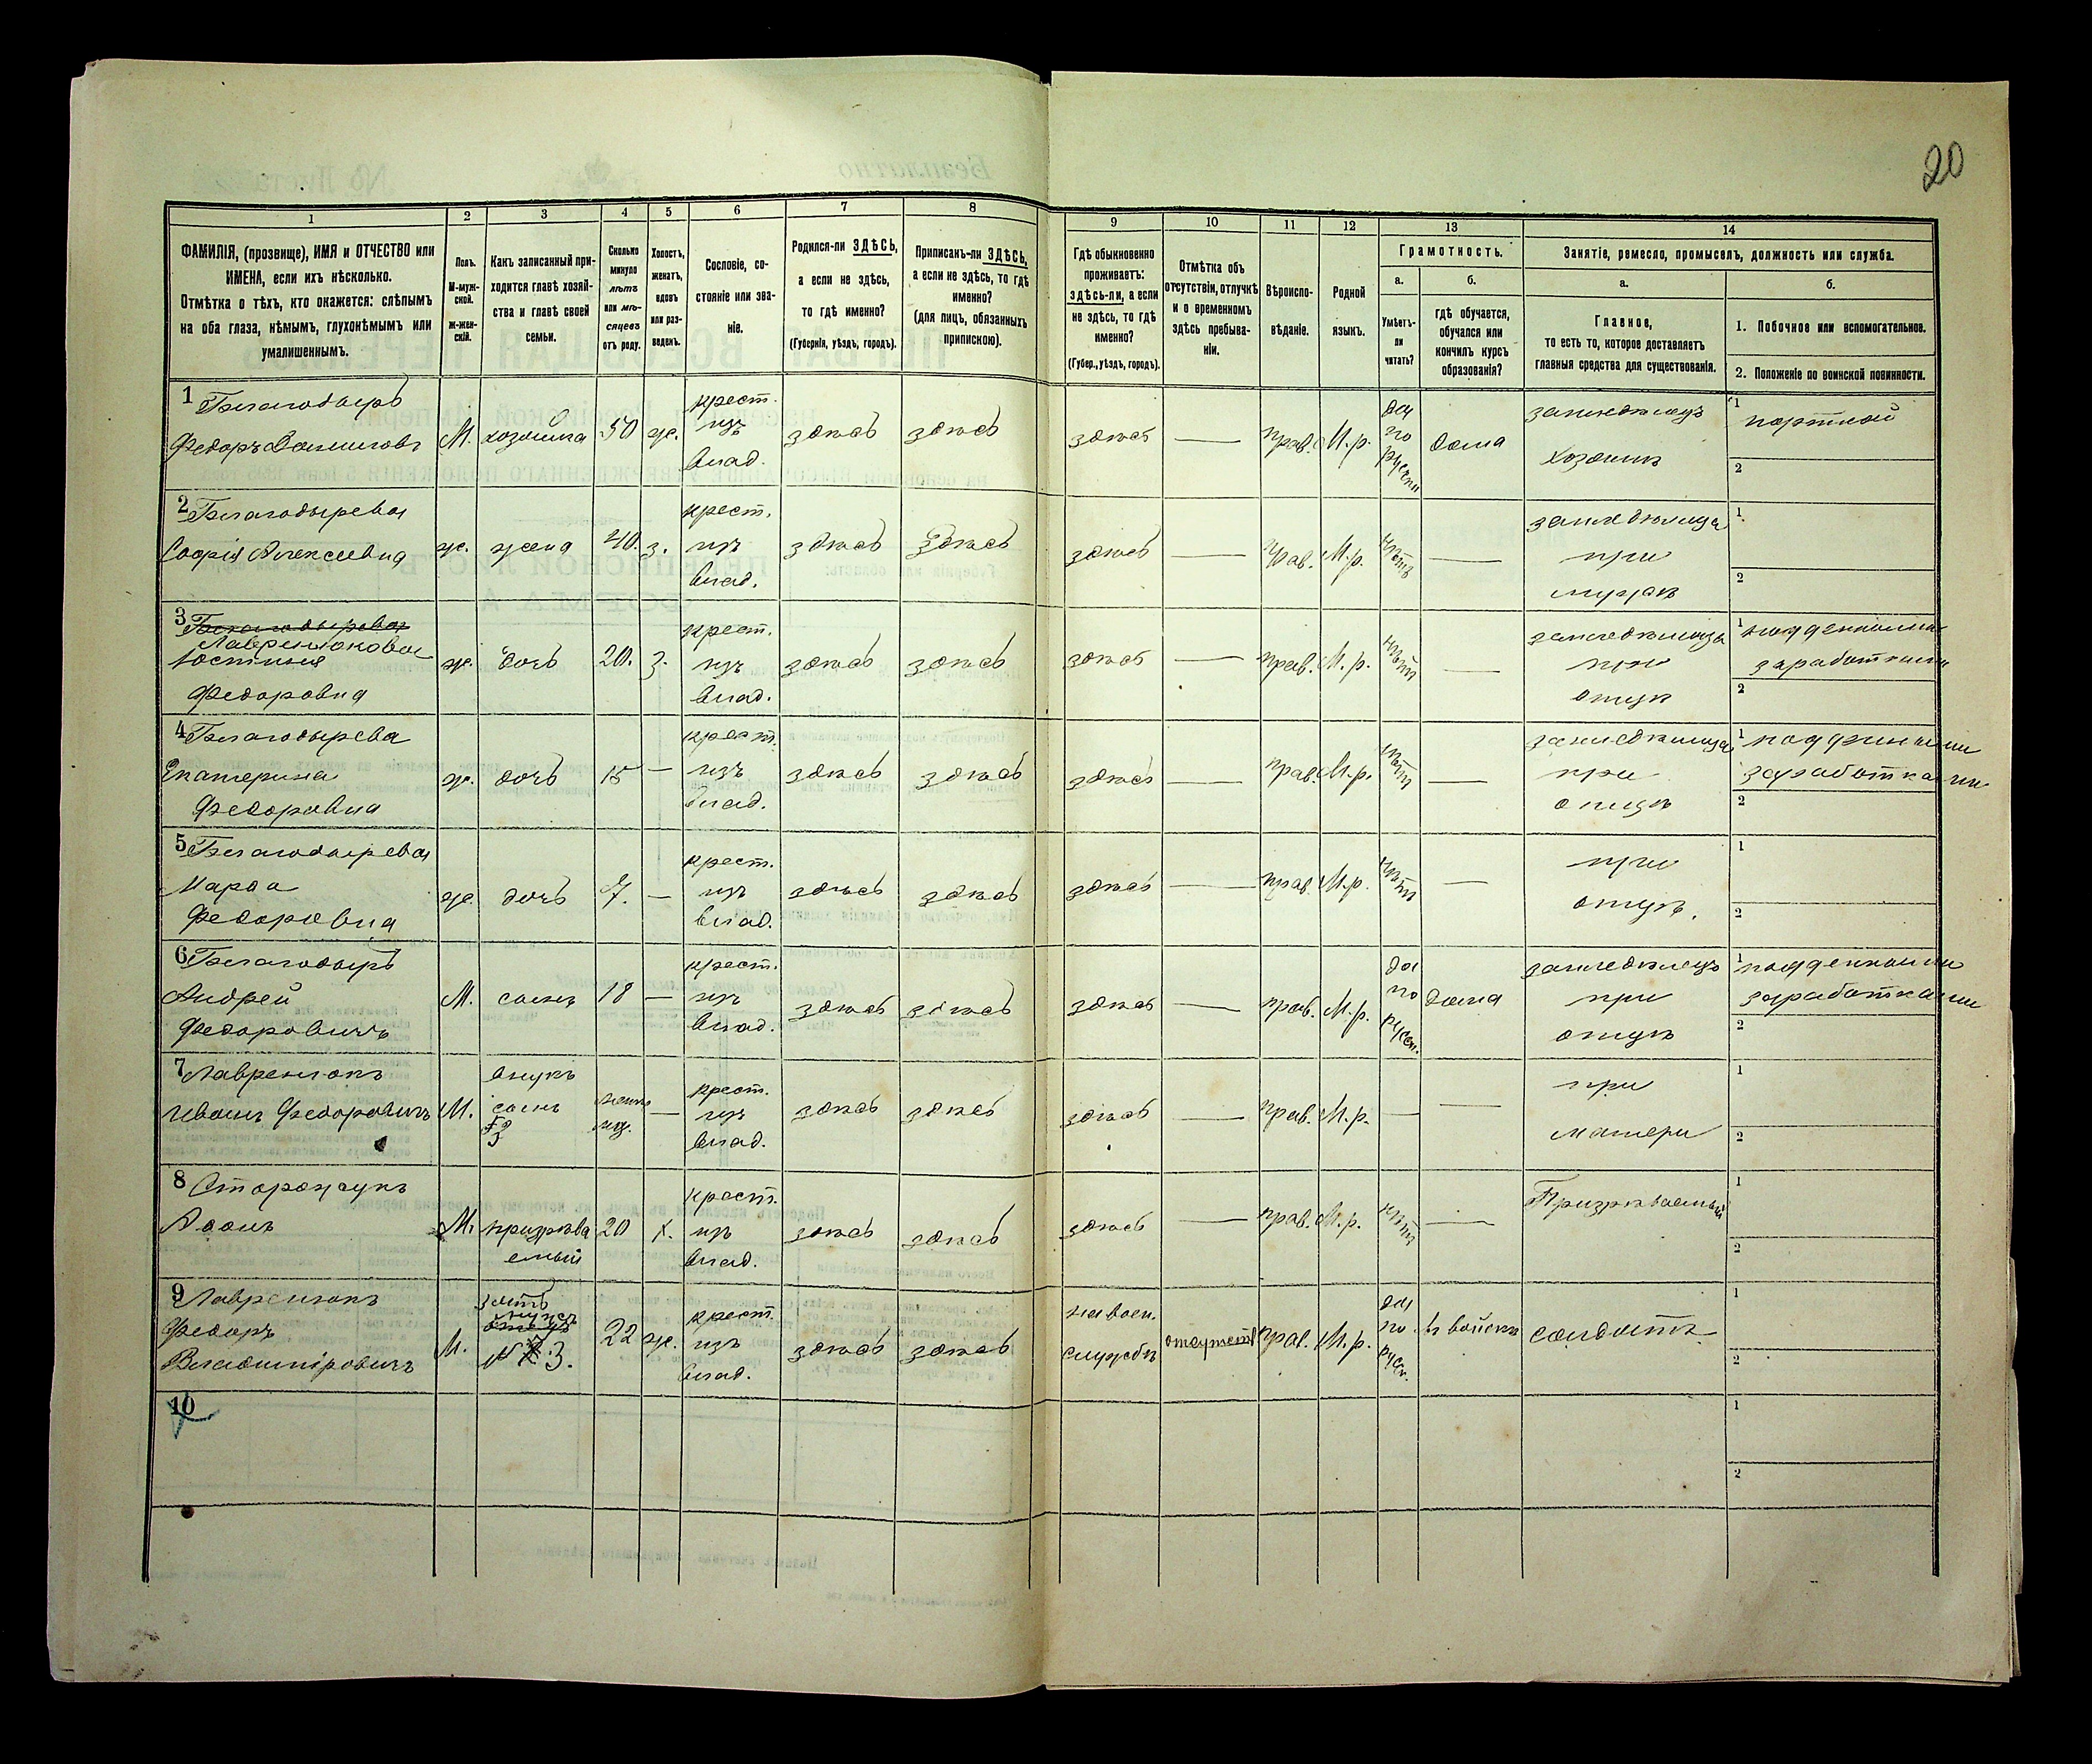 20
1 2 3 4 5 6 7 8 9 10 11 12 13 14
ФАМИЛІЯ, (прозвище), ИМЯ и ОТЧЕСТВО или
ИМЕНА, если ихъ нѣсколько.
Отмѣтка о тѣхъ, кто окажется: слѣпымъ
на оба глаза, нѣмымъ, глухонѣмымъ или
умалишеннымъ.
Полъ.
М-муж-
ской.
Ж-жен-
скій.
Какъ записанный при-
ходится главѣ хозяй-
ства и главѣ своей
семьи.
Сколько
минуло
лѣтъ
или мѣ-
сяцевъ
отъ роду.
Холостъ,
женатъ,
вдовъ
или раз-
веденъ.
Сословіе, со-
стояніе или зва-
ніе.
Родился-ли ЗДѢСЬ,
а если не здѣсь,
то гдѣ именно?
(Губернія, уѣздъ, городъ).
Приписанъ-ли ЗДѢСЬ,
а если не здѣсь, то гдѣ
именно?
(для лицъ, обязанныхъ
припискою).
Гдѣ обыкновенно
проживаетъ:
здѣсь-ли, а если
не здѣсь, то гдѣ
именно?
(Губер., уѣздъ, городъ).
Отмѣтка объ
отсутствіи, отлучкѣ
и о временномъ
здѣсь пребыва-
ніи.
Вѣроиспо-
вѣданіе.
Родной
языкъ.
Грамотность.
а.
Умѣетъ-
ли
читать?
б.
гдѣ обучается,
обучался или
кончилъ курсъ
образованія?
Занятіе, ремесло, промыселъ, должность или служба.
а.
Главное,
то есть то, которое доставляетъ
главныя средства для существованія.
б.
1. Побочное или вспомогательное.
2. Положеніе по воинской повинности.
1 Благодыръ
Федоръ М. хозяинъ 50 ж. крест. изъ влад. здѣсь здѣсь здѣсь — прав. М.р. да по русски дома
земледѣлецъ хозяинъ
1 портной
2
2 Благодырева
Софія Алексѣевна ж. жена 40. з. крест. изъ влад. здѣсь здѣсь здѣсь — прав. М.р. нѣтъ —
земледѣлица при мужѣ
1
2
3 Благодырева
Лавренюкова
Юстинія
Федоровна ж. дочь 20. з. крест. изъ влад. здѣсь здѣсь здѣсь — прав. М.р. нѣтъ —
земледѣлица при отцѣ
1 подденными
заработками
2
4 Благодырева
Екатерина
Федоровна ж. дочь 15 — крест. изъ влад. здѣсь здѣсь здѣсь — прав. М.р. нѣтъ —
земледѣлица при отцѣ
1 подденными
заработками
2
5 Благодырева
Марѳа
Федоровна ж. дочь 7. — крест. изъ влад. здѣсь здѣсь здѣсь — прав. М.р. нѣтъ —
при отцѣ.
1
2
6 Благодыръ
Андрей
Федоровичъ М. сынъ 18 — крест. изъ влад. здѣсь здѣсь здѣсь — прав. М.р. да по русск. дома
земледѣлецъ при отцѣ
1 подденными
заработками
2
7 Лавренюкъ
Иванъ Федоровичъ М. внукъ сынъ 3 — крест. изъ влад. здѣсь здѣсь здѣсь — прав. М.р. — —
при матери
1
2
8 Сторожукъ
М. призрѣваемый 20 х. крест. изъ влад. здѣсь здѣсь здѣсь — прав. М.р. нѣтъ —
Призрѣваемый
1
2
9 Лавренюкъ
Федоръ
Владиміровичъ М. зять мужъ № 3. 22 ж. крест. изъ влад. здѣсь здѣсь на воен. службѣ отсутств прав. М.р. да по русск. въ войскѣ солдатъ
1
2
10
1
2